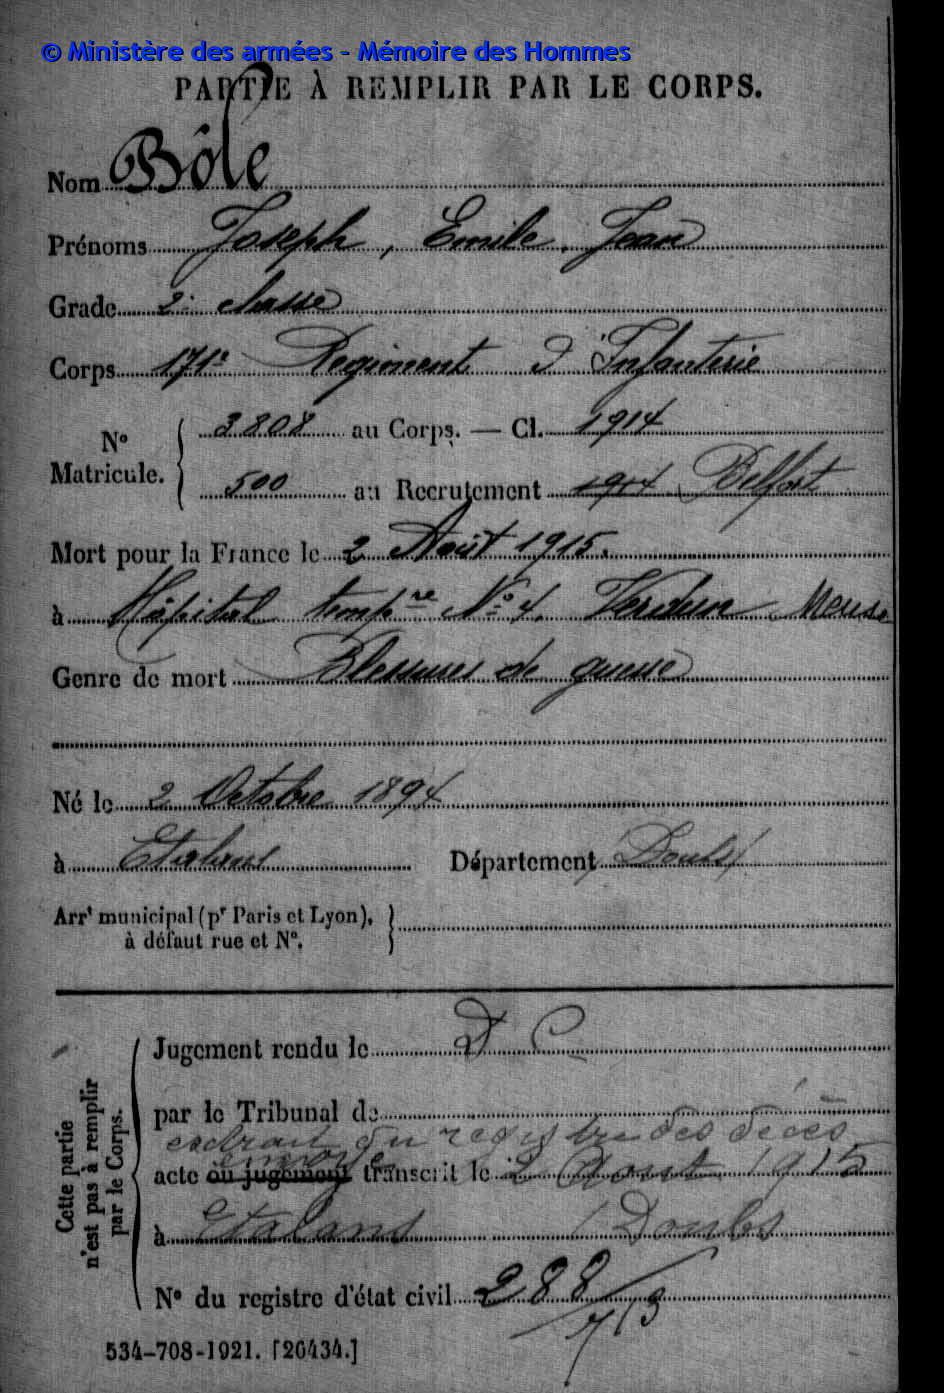 © Ministère des armées - Mémoire des Hommes
PARTIE À REMPLIR PAR LE CORPS.
Nom Bôle
Prénoms Joseph, Emile, Jean
Grade 2e classe
Corps 171e Regiment d'Infanterie
No Matricule. { 3808 au Corps. — Cl. 1914
500 au Recrutement 1914 Belfort
Mort pour la France le 2 Août 1915.
à Hôpital tempre No 4, Verdun Meuse
Genre de mort Blessures de guerre
Né le 2 Octobre 1894
à Etalans Département Doubs
Arrt municipal (pr Paris et Lyon),
à défaut rue et No.
Cette partie
n'est pas à remplir
par le Corps.
Jugement rendu le D C
par le Tribunal de
extrait du registre des décès
envoyé
acte ou jugement transcrit le 2 Aout 1915
à Etalans / Doubs
No du registre d'état civil 288/713
534-708-1921. [26434.]